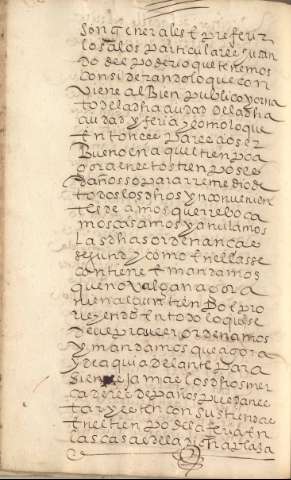 son generales e preferir
los a los particulares usan
do de el poderio que tenemos
considerando lo que con
viene al bien publico y orna
to de la dha ciudad de la dha
ciudad y feria y como lo que
entonces parecio ser
bueno en aquel tienpo a
gora en estos tienpos es
dañoso para rremedio de
todos los dhos ynconuenien
tes damos que reboca
mos casamos y anulamos
las dhas ordenanças
segund y como en ellas se
contiene e mandamos
que no valgan agora
ni en algun tienpo e pro
beyendo en todo lo que se
deve proveer ordenamos
y mandamos que agora
y de aqui adelante para
sienpre jamas los dhos mer
caderes de paños puedan es
tar y esten con sus tiendas
en el tienpo de la feria en
las casas de la plaza